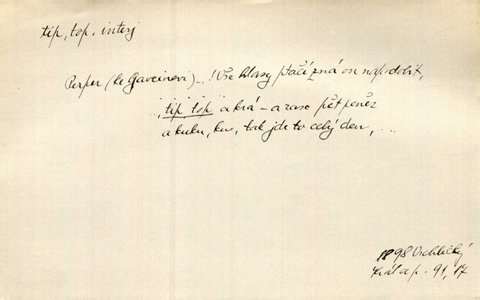 tip, top. interj
Perper (ke Gavcinovi)...! Vše hlasy ptačí zná on napodobit,
"tip top" a krá – a zase pět peněz
a kuku, ku, tak jde to celý den, ...
1898 Vrchlický
Král a p. 91, 17